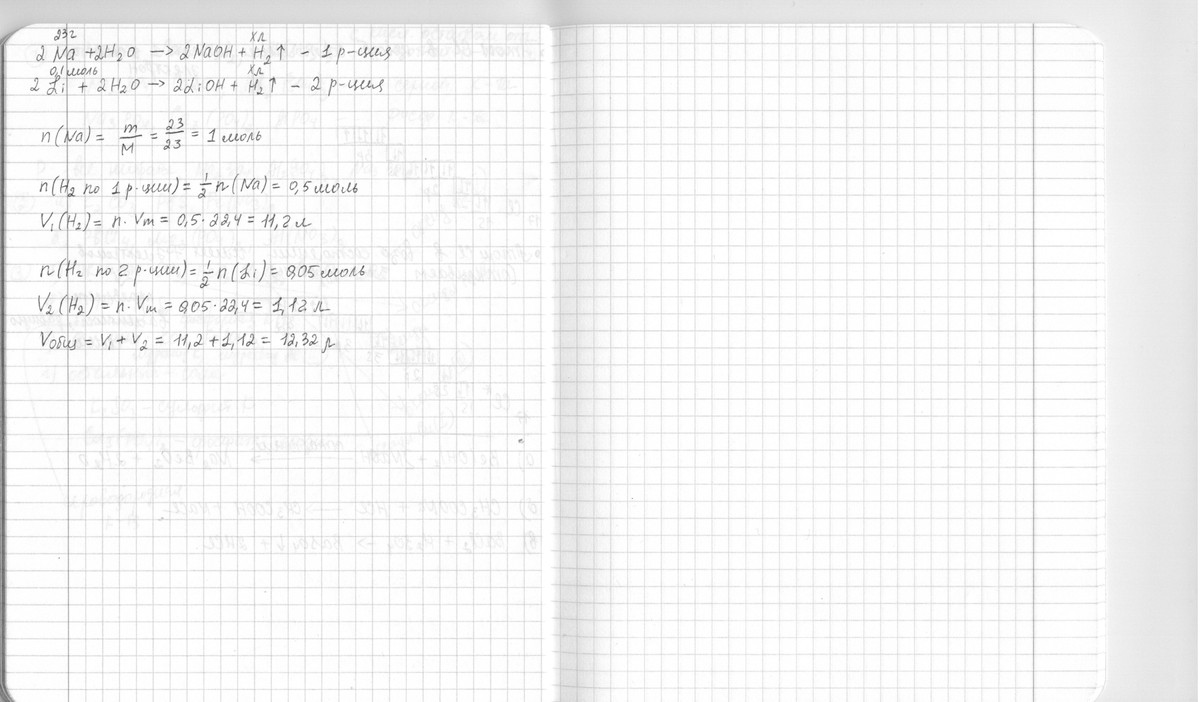 23г хл
2 Na + 2H₂O → 2NaOH + H₂↑ - 1 р-ция
0,1 моль хл
2 Li + 2H₂O → 2LiOH + H₂↑ - 2 р-ция
n(Na) = m/M = 23/23 = 1 моль
n(H₂ по 1 р-ции) = 1/2 n(Na) = 0,5 моль
V₁(H₂) = n · Vm = 0,5 · 22,4 = 11,2 л
n(H₂ по 2 р-ции) = 1/2 n(Li) = 0,05 моль
V₂(H₂) = n · Vm = 0,05 · 22,4 = 1,12 л
Vобщ = V₁ + V₂ = 11,2 + 1,12 = 12,32 л